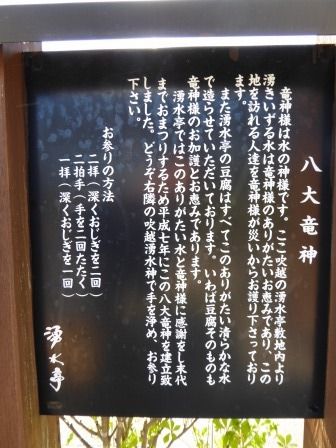 八大竜神
竜神様は水の神様です。ここ吹越の湧水亭敷地内より
湧きいずる水は竜神様のありがたいお恵みであり、この
地を訪れる人達を竜神様が災いからお護り下さっており
ます。
また湧水亭の豆腐はすべてこのありがたい清らかな水
で造らせていただいております。いわば豆腐そのものも
竜神様のお加護とお恵みであります。
湧水亭ではこのありがたい水と竜神様に感謝をし末代
までおまつりするため平成七年にこの八大竜神を建立致
しました。どうぞ右隣の吹越湧水神で手を浄め、お参り
下さい。
お参りの方法
二拝（深くおじぎを二回）
二拍手（手を二回たたく）
一拝（深くおじぎを一回）
湧水亭